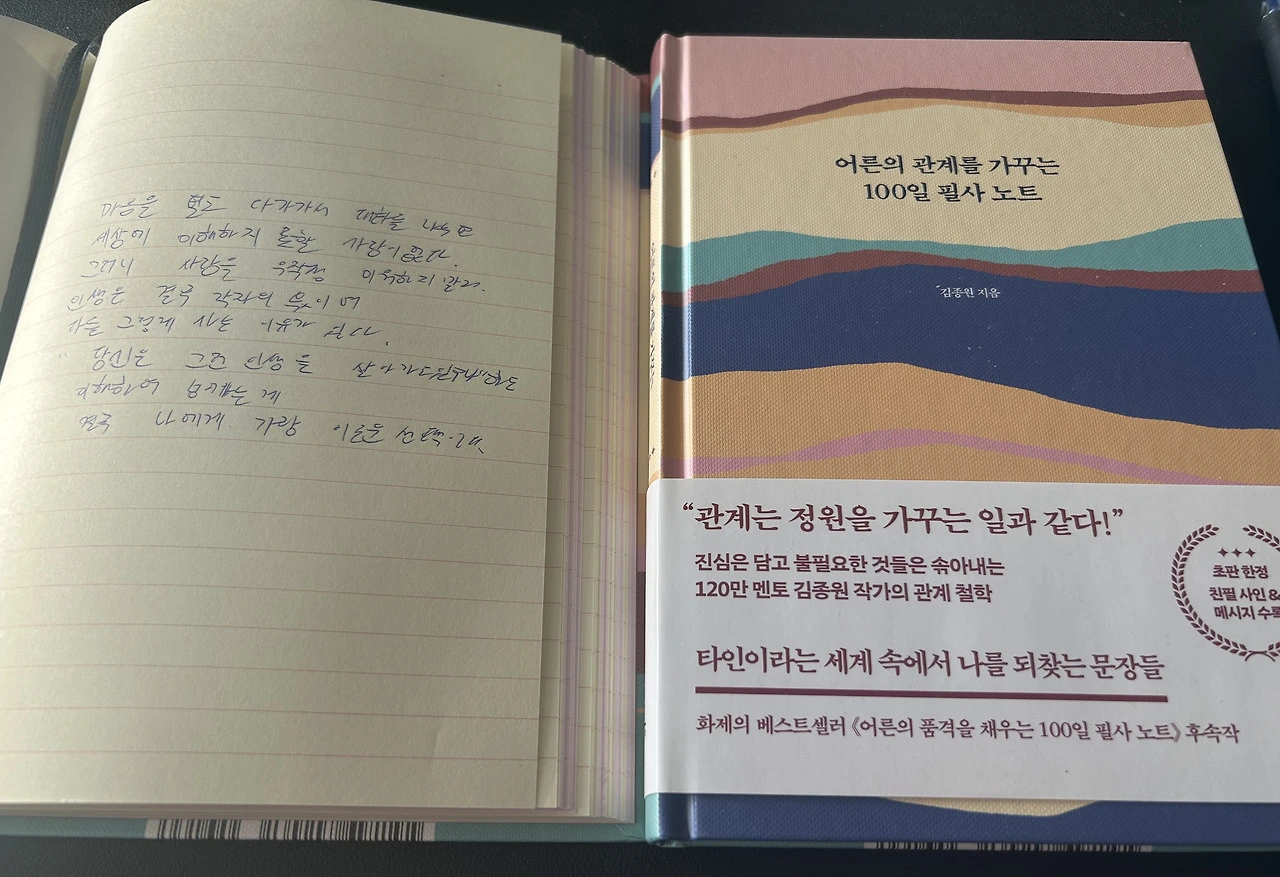 마음을 열고 다가가서 대화를 나누면
세상에 이해하지 못할 사람이 없다.
그러니 사람을 무작정 미워하지 말라.
인생은 결국 각자의 몫이며
다들 그렇게 사는 이유가 있다.
당신은 그런 인생을 살아가느라
이해하며
결국 나에게 가장 이로운 선택
어른의 관계를 가꾸는
100일 필사 노트
김종원 지음
“관계는 정원을 가꾸는 일과 같다!”
진심은 담고 불필요한 것들은 솎아내는
120만 멘토 김종원 작가의 관계 철학
초판 한정
친필 사인 &
메시지 수록
타인이라는 세계 속에서 나를 되찾는 문장들
화제의 베스트셀러 《어른의 품격을 채우는 100일 필사 노트》 후속작